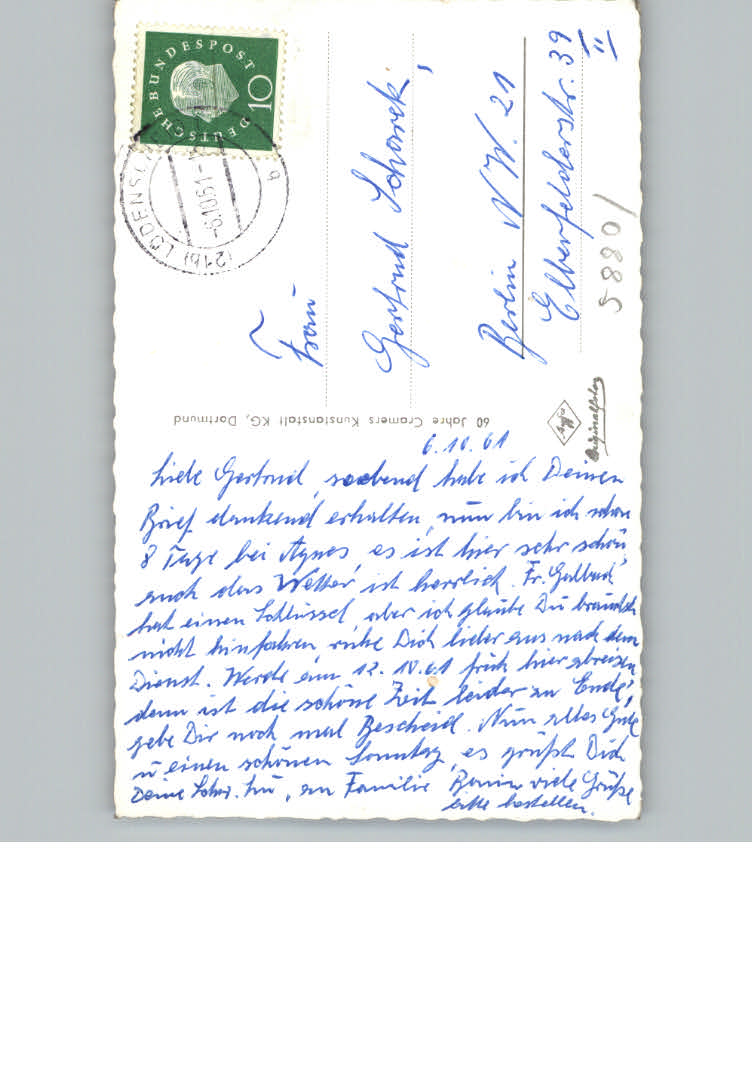 DEUTSCHE BUNDESPOST
10
(21b) LÜDENS
-6.10.61-
b
Frau
Gertrud Schorek,
Berlin N.W. 21
Elberfelderstr. 39
II
5880/
60 Jahre Cramers Kunstanstalt KG, Dortmund
Agfa
Originalfoto
6.10.61
Liebe Gertrud, soebend habe ich Deinen
Brief dankend erhalten, nun bin ich schon
8 Tage bei Agnes, es ist hier sehr schön,
auch das Wetter ist herrlich. Fr.
hat einen Schlüssel, aber ich glaube Du brauchst
nicht hinfahren, ruhe Dich lieber aus nach dem
Dienst. Werde am 12.10.61 früh hier abreisen,
denn ist die schöne Zeit leider zu Ende,
gebe Dir noch mal Bescheid. Nun alles Gute
u einen schönen Sonntag, es grüßt Dich
Deine Schw. , an Familie viele Grüße
bitte bestellen.